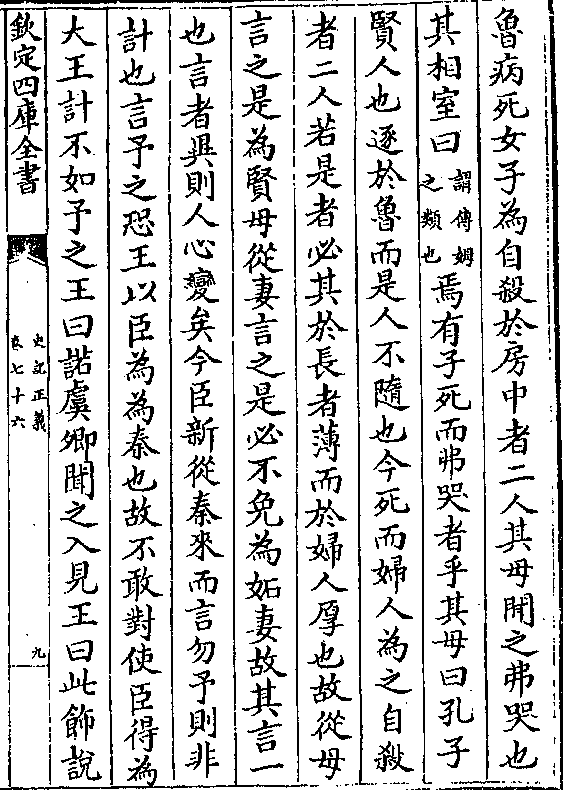 魯病死女子為自殺於房中者二人其母聞之弗哭也
其相室曰謂傅姆之類也焉有子死而弗哭者乎其母曰孔子
賢人也逐於魯而是人不隨也今死而婦人為之自殺
者二人若是者必其於長者薄而於婦人厚也故從母
言之是為賢母從妻言之是必不免為妬妻故其言一
也言者異則人心變矣今臣新從秦來而言勿予則非
計也言予之恐王以臣為為秦也故不敢對使臣得為
大王計不如予之王曰諾虞卿聞之入見王曰此飾說
欽定四庫全書
史記正義
卷七十六
九